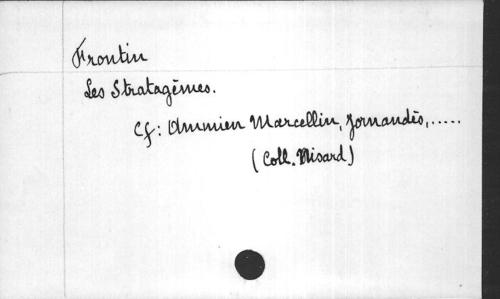 Frontin
Les Stratagèmes.
Cf: Ammien Marcellin, Jornandès,.....
(Coll. Nisard)